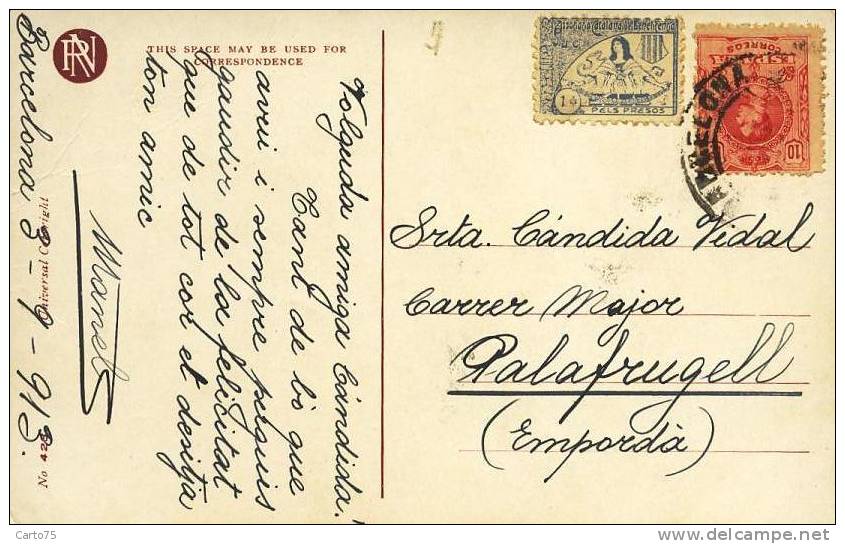 RN
THIS SPACE MAY BE USED FOR
CORRESPONDENCE
Barcelona 3-9-913.
Volguda amiga Càndida!
Tant de bò que
avui i sempre puguis
gaudir de la felicitat
que de tot cor et desitja
ton amic
Manel
Universal Copyright
No 42
PELS PRESOS
CORREOS
10
BARCELONA
Srta. Cándida Vidal
Carrer Major
Palafrugell
(Empordà)
Carto75
www.delcampe.net